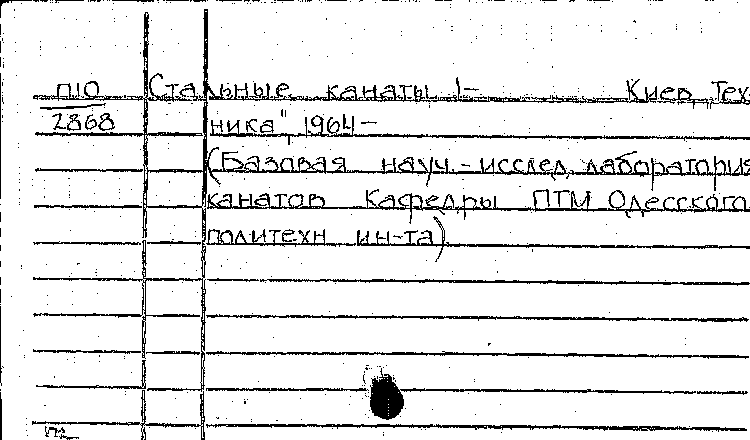 П10 Стальные канаты 1- Киев, Тех-
2868 ника", 1964-
(Базовая науч.-исслед. лаборатория
канатов Кафедры ПТМ Одесского
политехн ин-та)